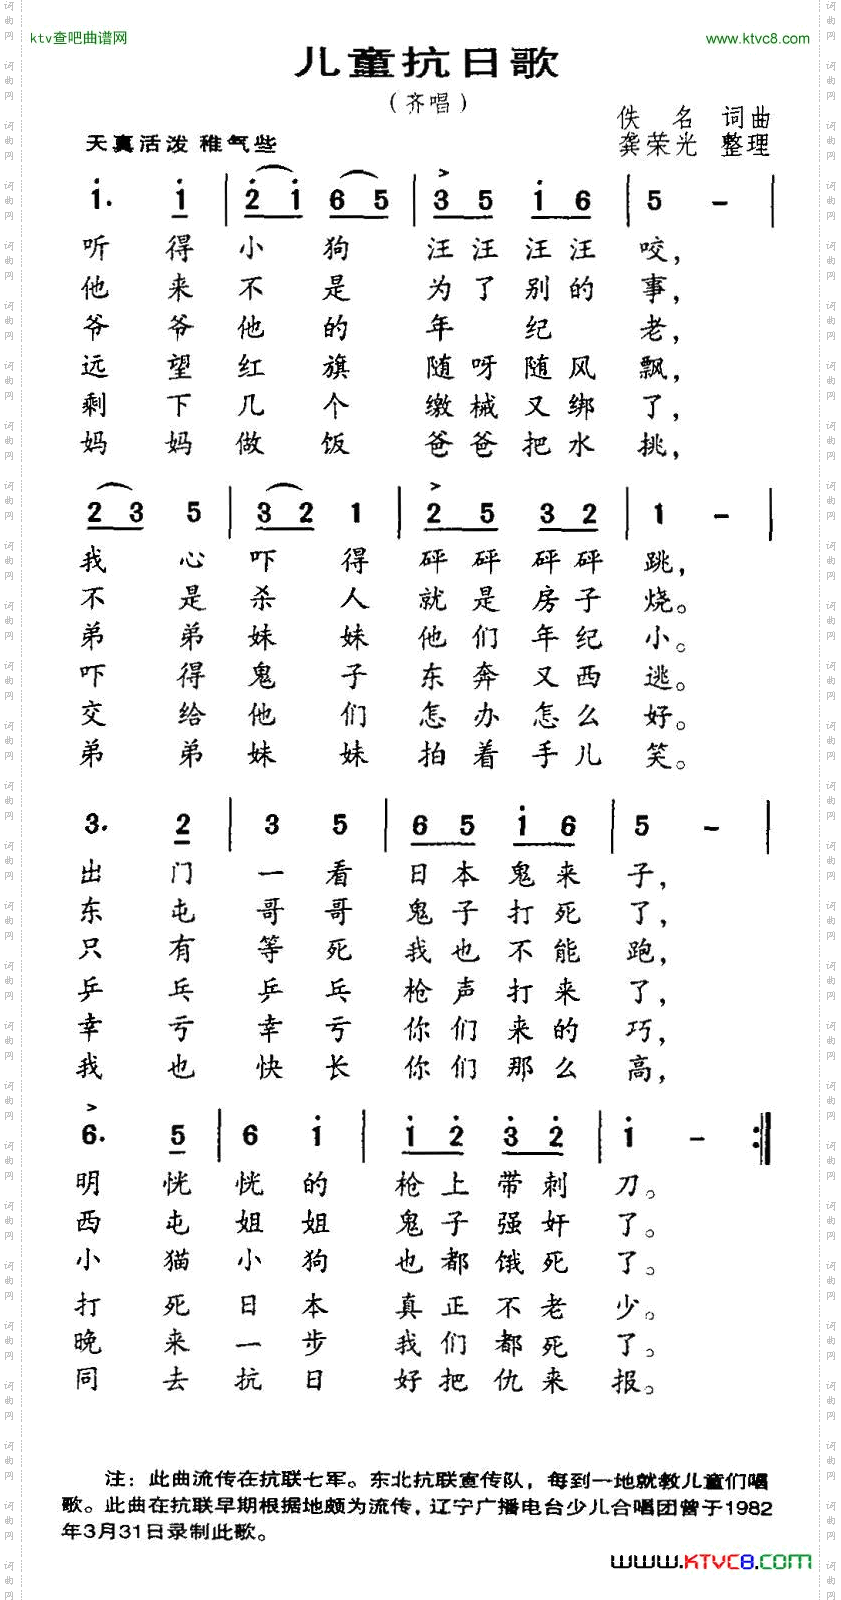 ktv查吧曲谱网
www.ktvc8.com
儿童抗日歌
（齐唱）
佚 名 词曲
天真活泼 稚气些
龚荣光 整理
1. 1 | 2 1 6 5 | 3 5 1 6 | 5 - |
听得小狗 汪汪汪汪咬,
他来不是 为了别的事,
爷爷他的 年纪老,
远望红旗 随呀随风飘,
剩下几个 缴械又绑了,
妈妈做饭 爸爸把水挑,
2 3 5 | 3 2 1 | 2 5 3 2 | 1 - |
我心吓得 砰砰砰砰跳,
不是杀人 就是房子烧。
弟弟妹妹 他们年纪小。
吓得鬼子 东奔又西逃。
交给他们 怎办怎么好。
弟弟妹妹 拍着手儿笑。
3. 2 | 3 5 | 6 5 1 6 | 5 - |
出门一看 日本鬼来子,
东屯哥哥 鬼子打死了,
只有等死 我也不能跑,
乒乓乒乓 枪声打来了,
幸亏幸亏 你们来的巧,
我也快长 你们那么高,
6. 5 | 6 1 | 1 2 3 2 | 1 - :|
明恍恍的 枪上带刺刀。
西屯姐姐 鬼子强奸了。
小猫小狗 也都饿死了。
打死日本 真正不老少。
晚来一步 我们都死了。
同去抗日 好把仇来报。
注：此曲流传在抗联七军。东北抗联宣传队，每到一地就教儿童们唱
歌。此曲在抗联早期根据地颇为流传，辽宁广播电台少儿合唱团曾于1982
年3月31日录制此歌。
www.KTVC8.com